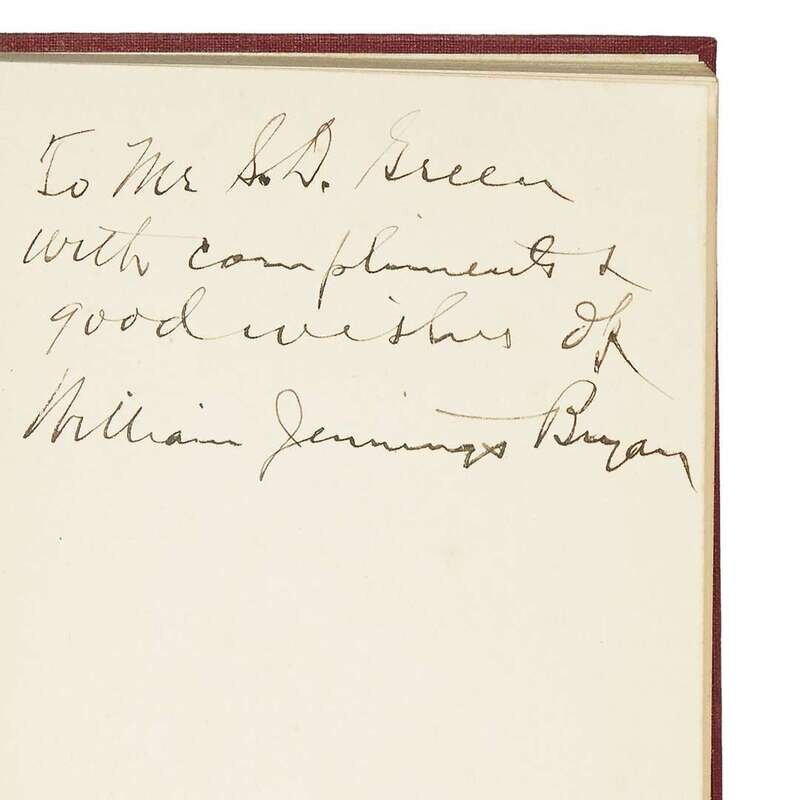 To Mr S. D. Green
with compliments &
good wishes of
William Jennings Bryan